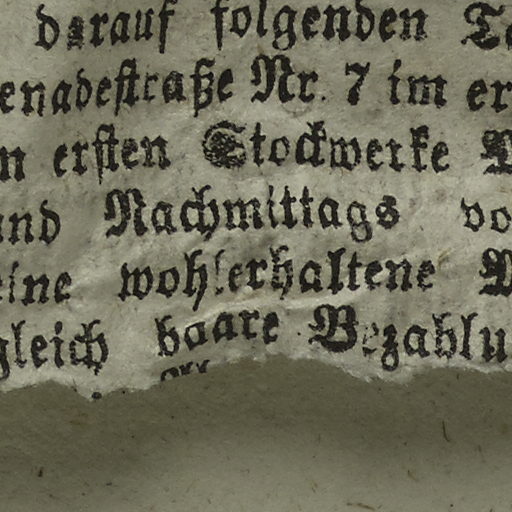 darauf folgenden Ta
enadestraße Nr. 7 im er
n ersten Stockwerke
und Nachmittags vo
eine wohlerhaltene
gleich baare Bezahlu